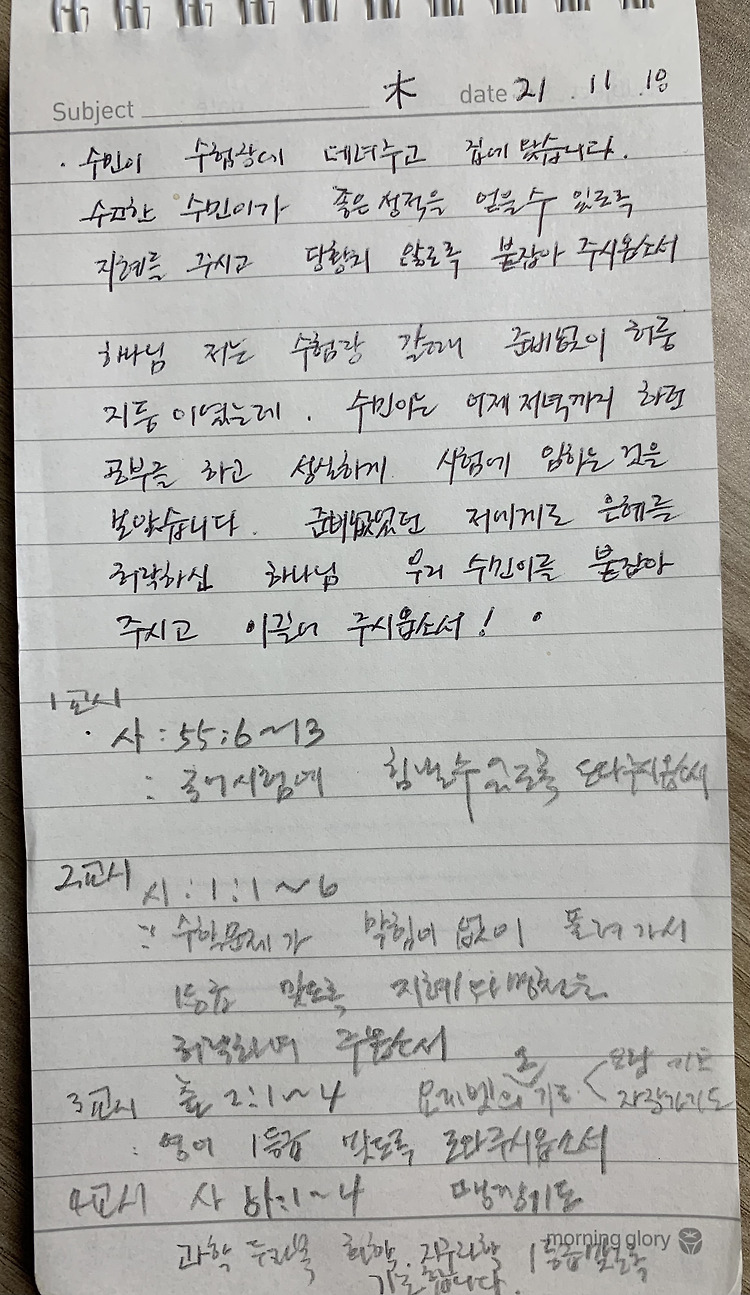 Subject 木 date 21 . 11 . 18
· 수민이 수험장에 데려주고 집에 왔습니다.
수고한 수민이가 좋은 성적을 얻을수 있도록
지혜를 주시고 당황치 않도록 붙잡아 주시옵소서
하나님 저는 수험장 갈때 준비없이 허둥
지둥 이였는데 . 수민이는 어제 저녁까지 하던
공부를 하고 성실하게 시험에 임하는 것을
보았습니다. 준비없었던 저에게도 은혜를
허락하신 하나님 우리 수민이를 붙잡아
주시고 이끌어 주시옵소서!
1교시
· 사 : 55:6~13
: 국어시험에 힘낼수 있도록 도와주시옵소서
2교시 시:1:1~6
: 수학문제가 막힘이 없이 풀려 가서
1등급 맞도록 지혜와 명철을
허락하여 주옵소서
3교시 출 2:1~4 요게벳의 기도 < 요람 기도
갈대 기도
: 영어 1등급 맞도록 도와주시옵소서
4교시 사 :1~4
과학 탐구 화학. 지구과학 1등급 맞도록
기도 합니다.
morning glory